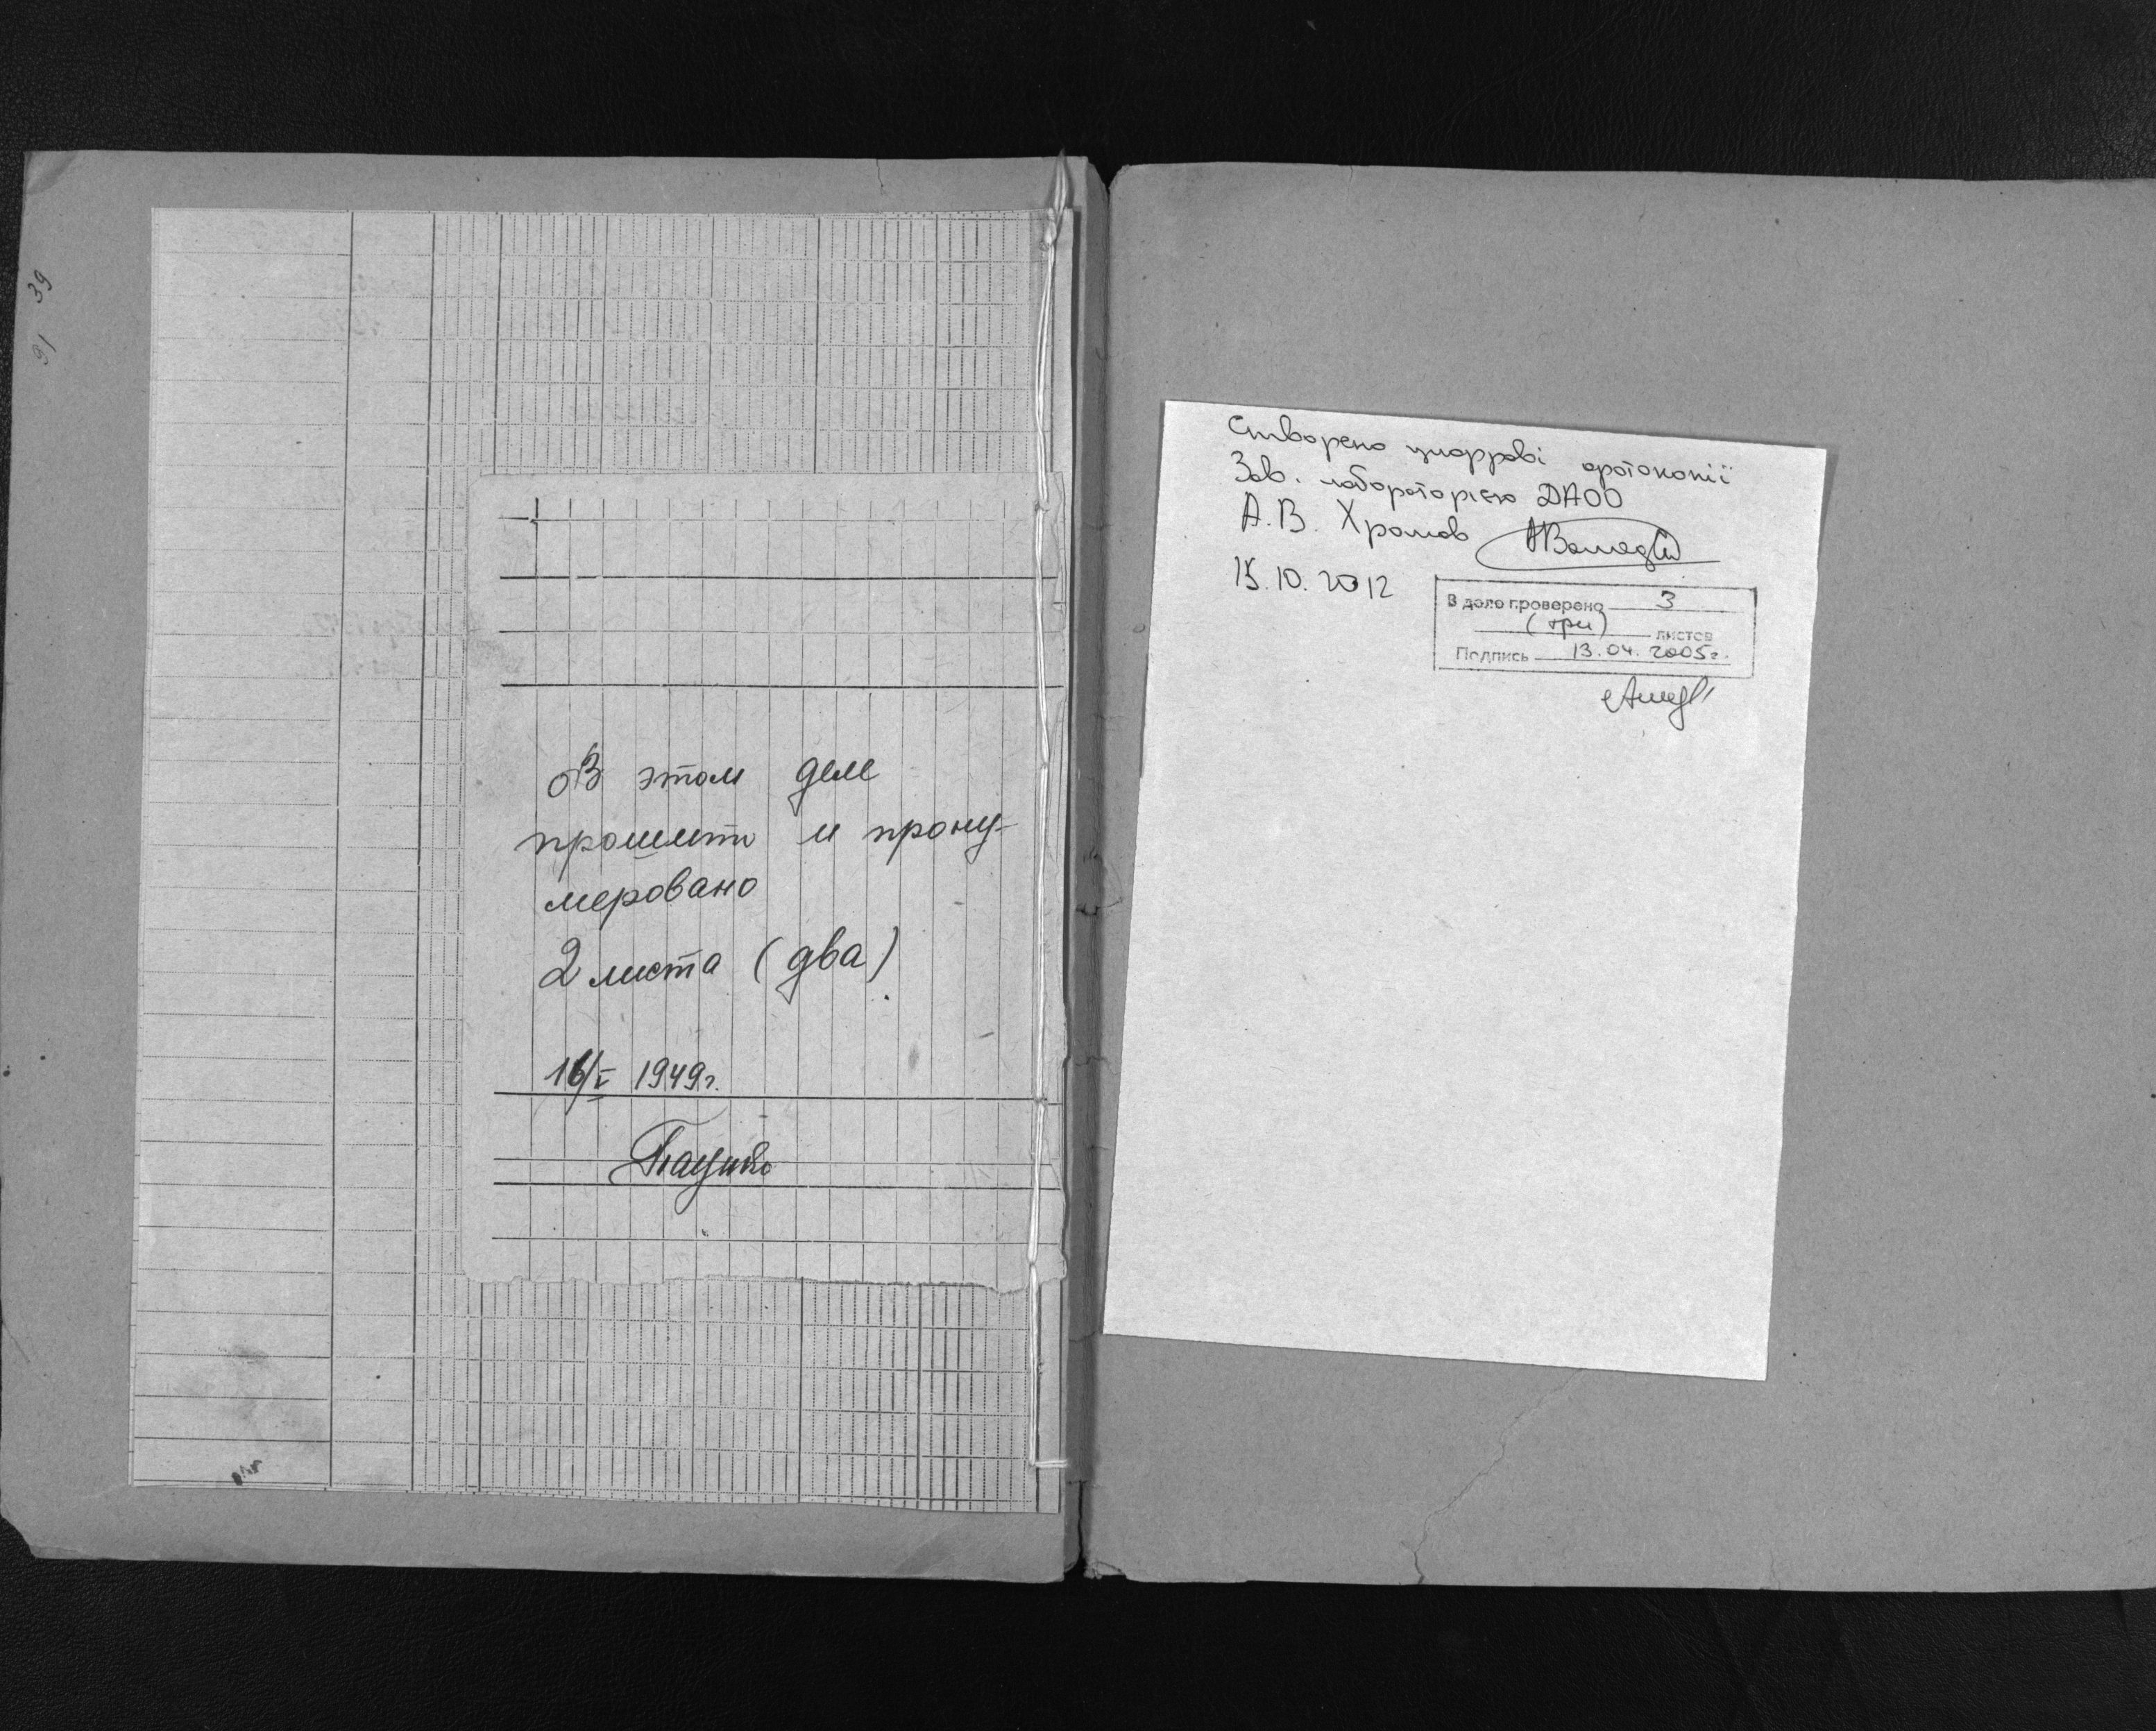 39
91
В этом деле
прошито и прону-
меровано
2 листа (два)
16/V 1949г.
Створено цифрові фотокопії
Зав. лабораторією ДАОО
А.В. Хромов
15.10.2012
В деле проверено 3
(три) листов
Подпись 13.04.2005г.